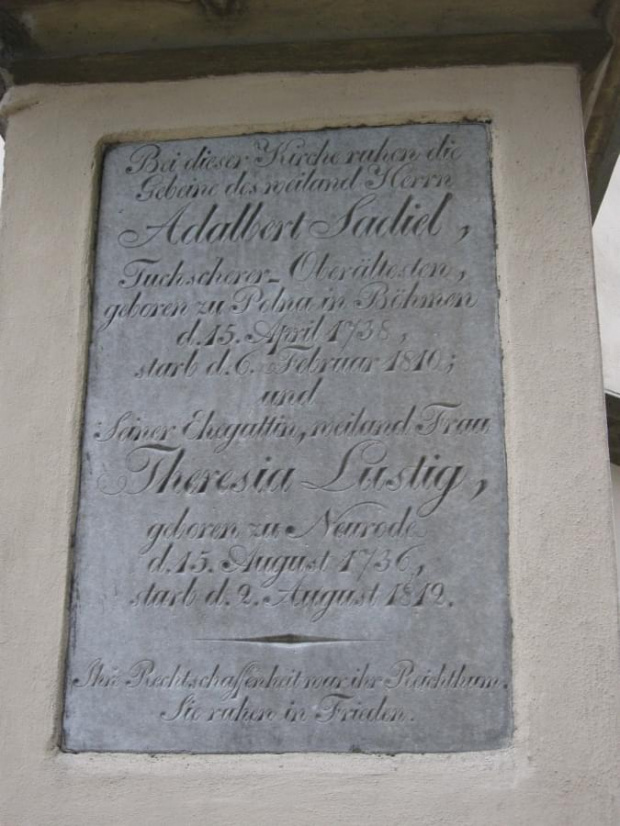 Bei dieser Kirche ruhen die
Gebeine des weiland Herrn
Adalbert Sadiel,
Tuchscherer-Oberältesten,
geboren zu Polna in Böhmen
d. 15. April 1738,
starb d. 6. Februar 1810;
und
Seiner Ehegattin, weiland Frau
Theresia Lustig,
geboren zu Neurode
d. 15. August 1736,
starb d. 2. August 1812.
Ihr Rechtschaffenheit war ihr Reichthum.
Sie ruhen in Frieden.